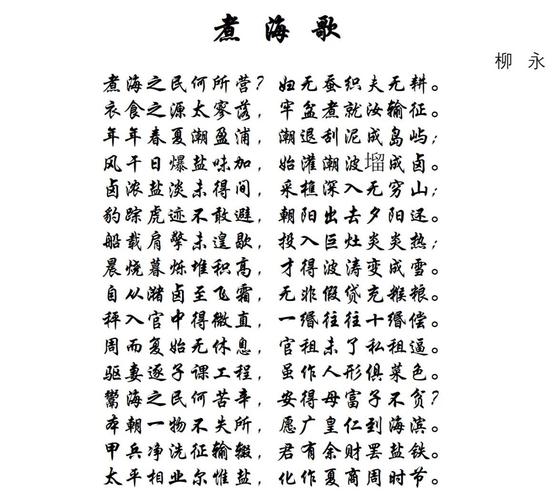 煮海歌
柳永
煮海之民何所营?妇无蚕织夫无耕。
衣食之源太寥落,牢盆煮就汝输征。
年年春夏潮盈浦,潮退刮泥成岛屿;
风干日爆盐味加,始灌潮波塯成卤。
卤浓盐淡未得间,采樵深入无穷山;
豹踪虎迹不敢避,朝阳出去夕阳还。
船载肩擎未遑歇,投入巨灶炎炎热;
晨烧暮烁堆积高,才得波涛变成雪。
自从潴卤至飞霜,无非假贷充糇粮。
秤入官中得微直,一缗往往十缗偿。
周而复始无休息,官租未了私租逼。
驱妻逐子课工程,虽作人形俱菜色。
鬻海之民何苦辛,安得母富子不贫?
本朝一物不失所,愿广皇仁到海滨。
甲兵净洗征输辍,君有余财罢盐铁。
太平相业尔惟盐,化作夏商周时节。